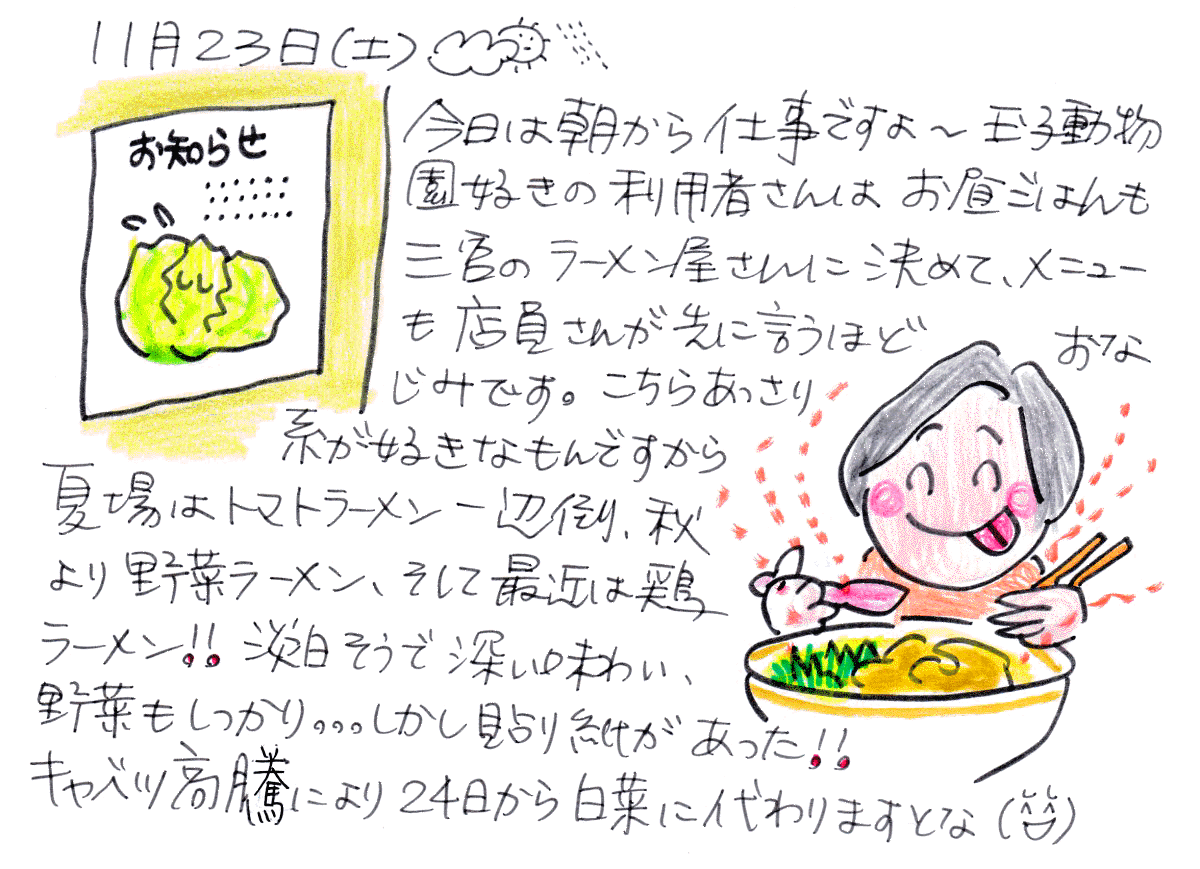 11月23日(土)
お知らせ
今日は朝から仕事ですよ～王子動物
園好きの利用者さんはお昼ごはんも
三宮のラーメン屋さんに決めて、メニュー
も店員さんが先に言うほどおな
じみです。こちらあっさり
系が好きなもんですから
夏場はトマトラーメン一辺倒、秋
より野菜ラーメン、そして最近は鶏
ラーメン!!淡白そうで深い味わい、
野菜もしっかり。。。しかし貼り紙があった!!
キャベツ高騰により24日から白菜に代わりますとな